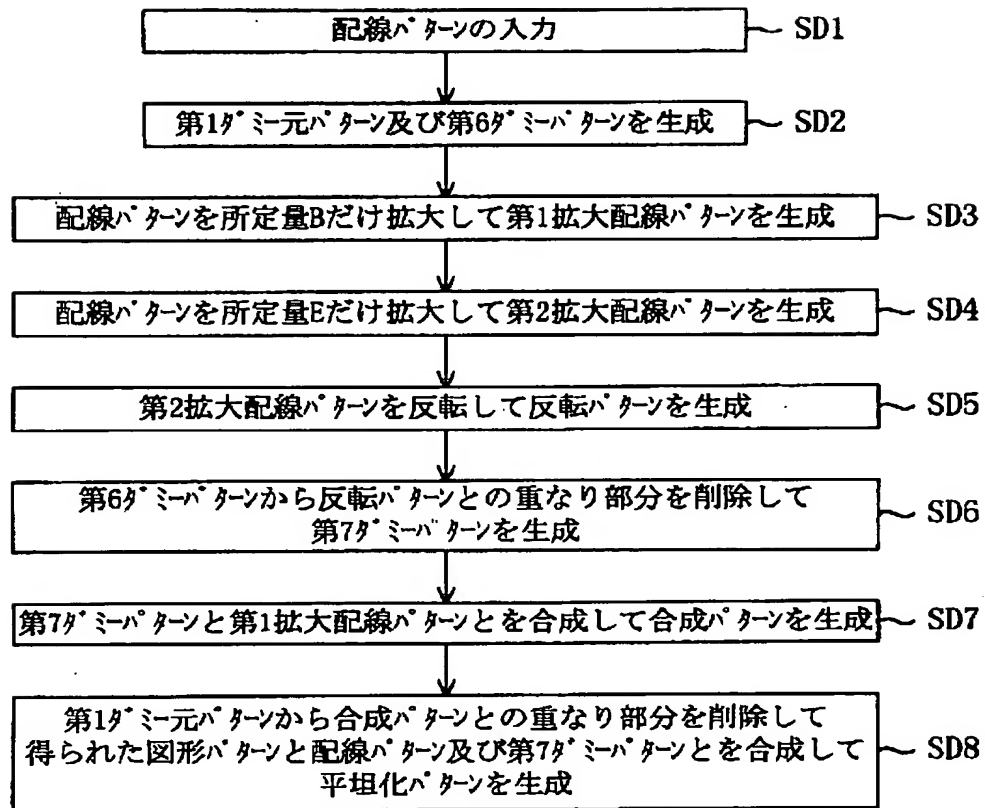 配線ﾊﾟﾀｰﾝの入力 SD1
第1ﾀﾞﾐｰ元ﾊﾟﾀｰﾝ及び第6ﾀﾞﾐｰﾊﾟﾀｰﾝを生成 SD2
配線ﾊﾟﾀｰﾝを所定量Bだけ拡大して第1拡大配線ﾊﾟﾀｰﾝを生成 SD3
配線ﾊﾟﾀｰﾝを所定量Eだけ拡大して第2拡大配線ﾊﾟﾀｰﾝを生成 SD4
第2拡大配線ﾊﾟﾀｰﾝを反転して反転ﾊﾟﾀｰﾝを生成 SD5
第6ﾀﾞﾐｰﾊﾟﾀｰﾝから反転ﾊﾟﾀｰﾝとの重なり部分を削除して
第7ﾀﾞﾐｰﾊﾟﾀｰﾝを生成 SD6
第7ﾀﾞﾐｰﾊﾟﾀｰﾝと第1拡大配線ﾊﾟﾀｰﾝとを合成して合成ﾊﾟﾀｰﾝを生成 SD7
第1ﾀﾞﾐｰ元ﾊﾟﾀｰﾝから合成ﾊﾟﾀｰﾝとの重なり部分を削除して
得られた図形ﾊﾟﾀｰﾝと配線ﾊﾟﾀｰﾝ及び第7ﾀﾞﾐｰﾊﾟﾀｰﾝとを合成して SD8
平坦化ﾊﾟﾀｰﾝを生成